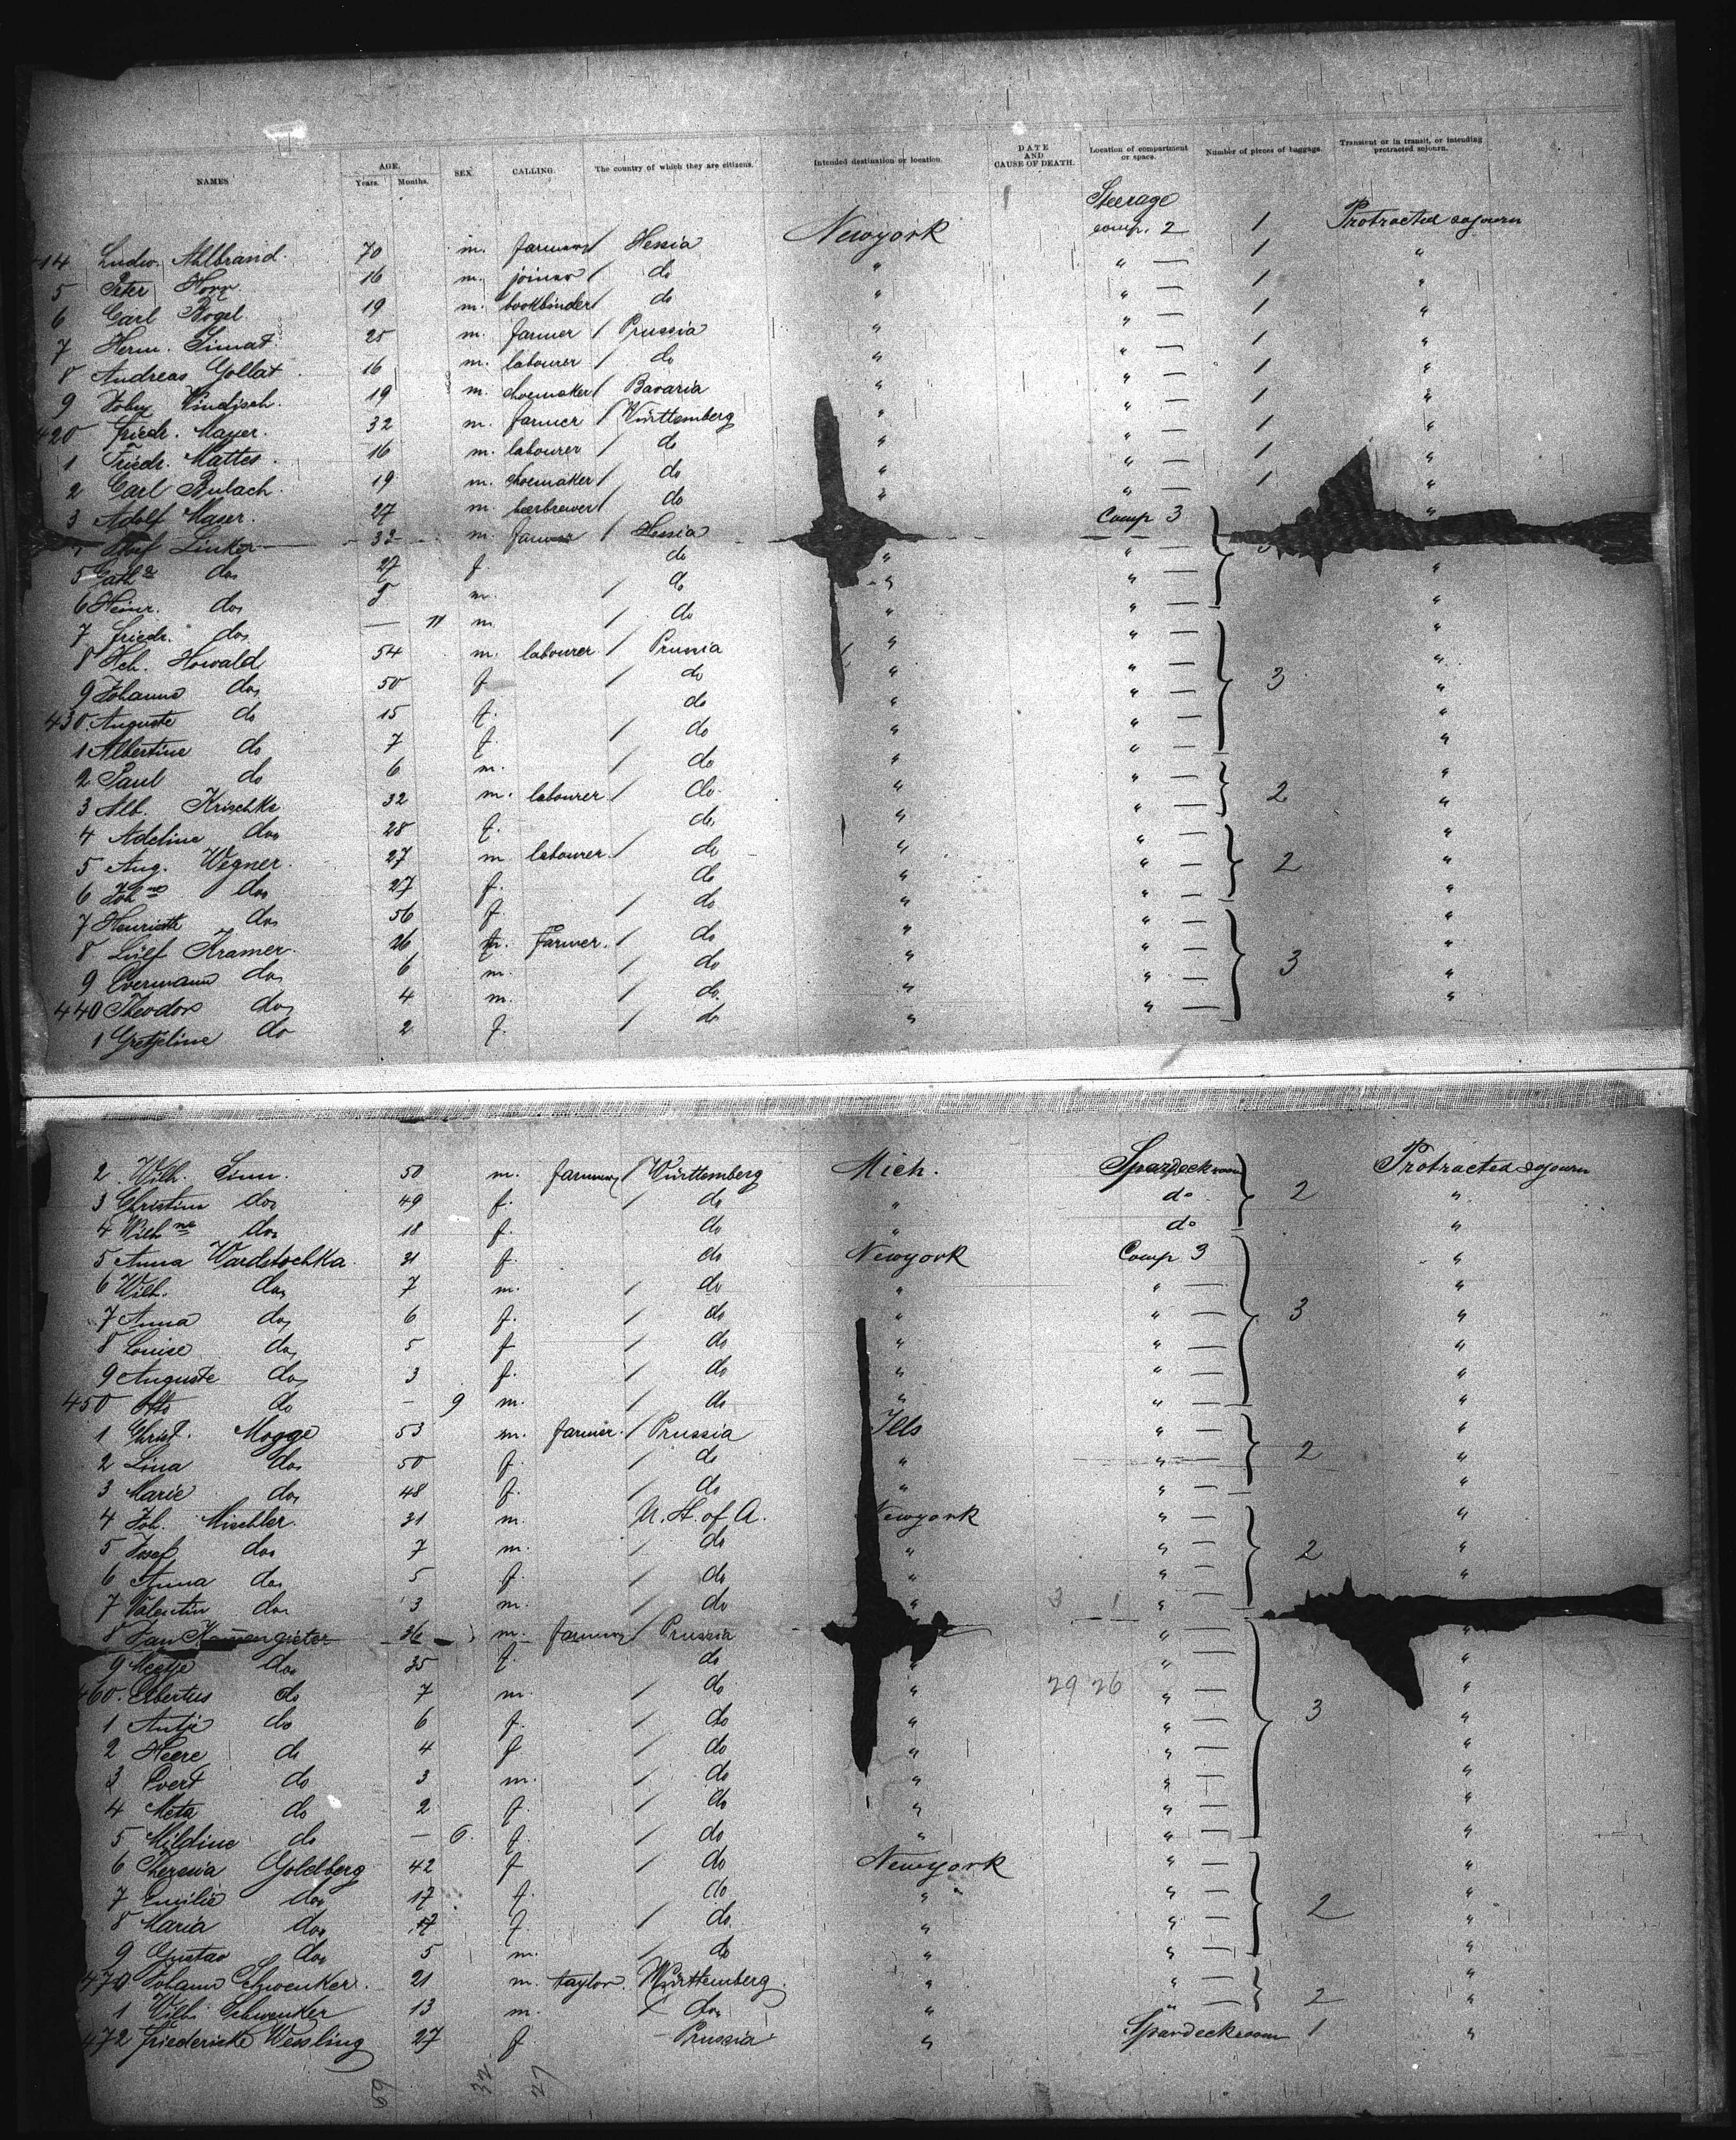 NAMES AGE. Years. Months. SEX. CALLING. The country of which they are citizens. Intended destination or location. DATE AND CAUSE OF DEATH. Location of compartment or space. Number of pieces of baggage. Transient or in transit, or intending protracted sojourn.
414 Ludw. Ahlbrand. 70 m. farmer / Hessia Newyork Steerage comp. 2 1 Protracted sojourn
5 Peter Horn 16 m. joiner / do " " — 1 "
6 Carl Bogel 19 m. bookbinder / do " " — 1 "
7 Herm. 25 m. farmer / Prussia " " — 1 "
8 Andreas Gollat 16 m. labourer / do " " — 1 "
9 Windisch. 19 m. shoemaker / Bavaria " " — 1 "
420 Friedr. Mayer. 32 m. farmer / Württemberg " " — 1 "
1 Friedr. Mattes. 16 m. labourer / do " " — 1 "
2 Carl Bulach. 19 m. shoemaker / do " " — 1 "
3 Adolf Maser. 27 m. beerbrewer / do " " — 1 "
Linker 32 m. farmer / Hessia Comp 3 "
5 Cath. do 27 f. do " " —
6 Heinr. do 5 m. / do " " — "
7 Friedr. do — 11 m. / do " " — "
8 Hch. Howald 54 m. labourer / Prussia " " — "
9 Johanna do 50 f / do " " — 3 "
430. Auguste do 15 f. do " " — "
1 Albertine do 7 f. / do " " — "
2 Paul do 6 m. / do " " — "
3 Alb. Krischke 32 m. labourer / do " " — 2 "
4 Adeline do 28 f. do " " — "
5 Aug. Wegner. 27 m labourer. / do " " — 2 "
6 Joh.ne do 27 f. do " " — "
7 Henriette do 56 f. / do " " — "
8 Lülf Kramer. 26 m. farmer. / do " " — "
9 Evermann do 6 m. / do " " — 3 "
440 Theodor do 4 m. / do " " — "
1 Gretjeline do 2 f. / do " " —
2 Wilh. 50 m. farmer / Württemberg Mich. Spardeckroom 2 Protracted sojourn
3 Christina do 49 f. / do " do "
4 Wilh.ne do 18 f. do " do "
5 Anna Wardetschka. 31 f. do Newyork Comp 3 "
6 Wilh. do 7 m. / do " " — "
7 Anna do 6 f. / do " " — 3 "
8 Louise do 5 f / do " " — "
9 Auguste do 3 f. / do " " — "
450 Otto do — 9 m. / do " " — "
1 Christ. Mogge 53 m. farmer. / Prussia Ills " — "
2 Lina do 50 f. / do " " — 2 "
3 Marie do 48 f. / do " " — "
4 Joh. Mischler. 31 m. U. St. of A. Newyork " — "
5 Josef do 7 m. / do " " — 2 "
6 Anna do 5 f. / do " " — "
7 Valentin do 3 m. / do " 3 1 " —
8 Jan 36 m. farmer / Prussia " — "
9 Meetje do 35 f. do " " — "
460. Elbertus do 7 m. / do " 29 26 " — 3 "
1 Antje do 6 f. / do " " — "
2 Heere do 4 f / do " " — "
3 Evert do 3 m. / do " " — "
4 Meta do 2 f. / do " " — "
5 Mildine do — 6. f. / do " " — "
6 Goldberg 42 f / do Newyork " — "
7 Emilie do 17 f. do " " — 2 "
8 Maria do 17 f. / do. " " — "
9 Gustav do 5 m. / do " " — "
470 Johann Schwenker. 21 m. taylor. Württemberg. " " — "
1 Wilh. Schwenker 13 m. / do " " — 2 "
472 Friedericke Wessling 27 f Prussia " Spardeckroom 1 "
59 32 27